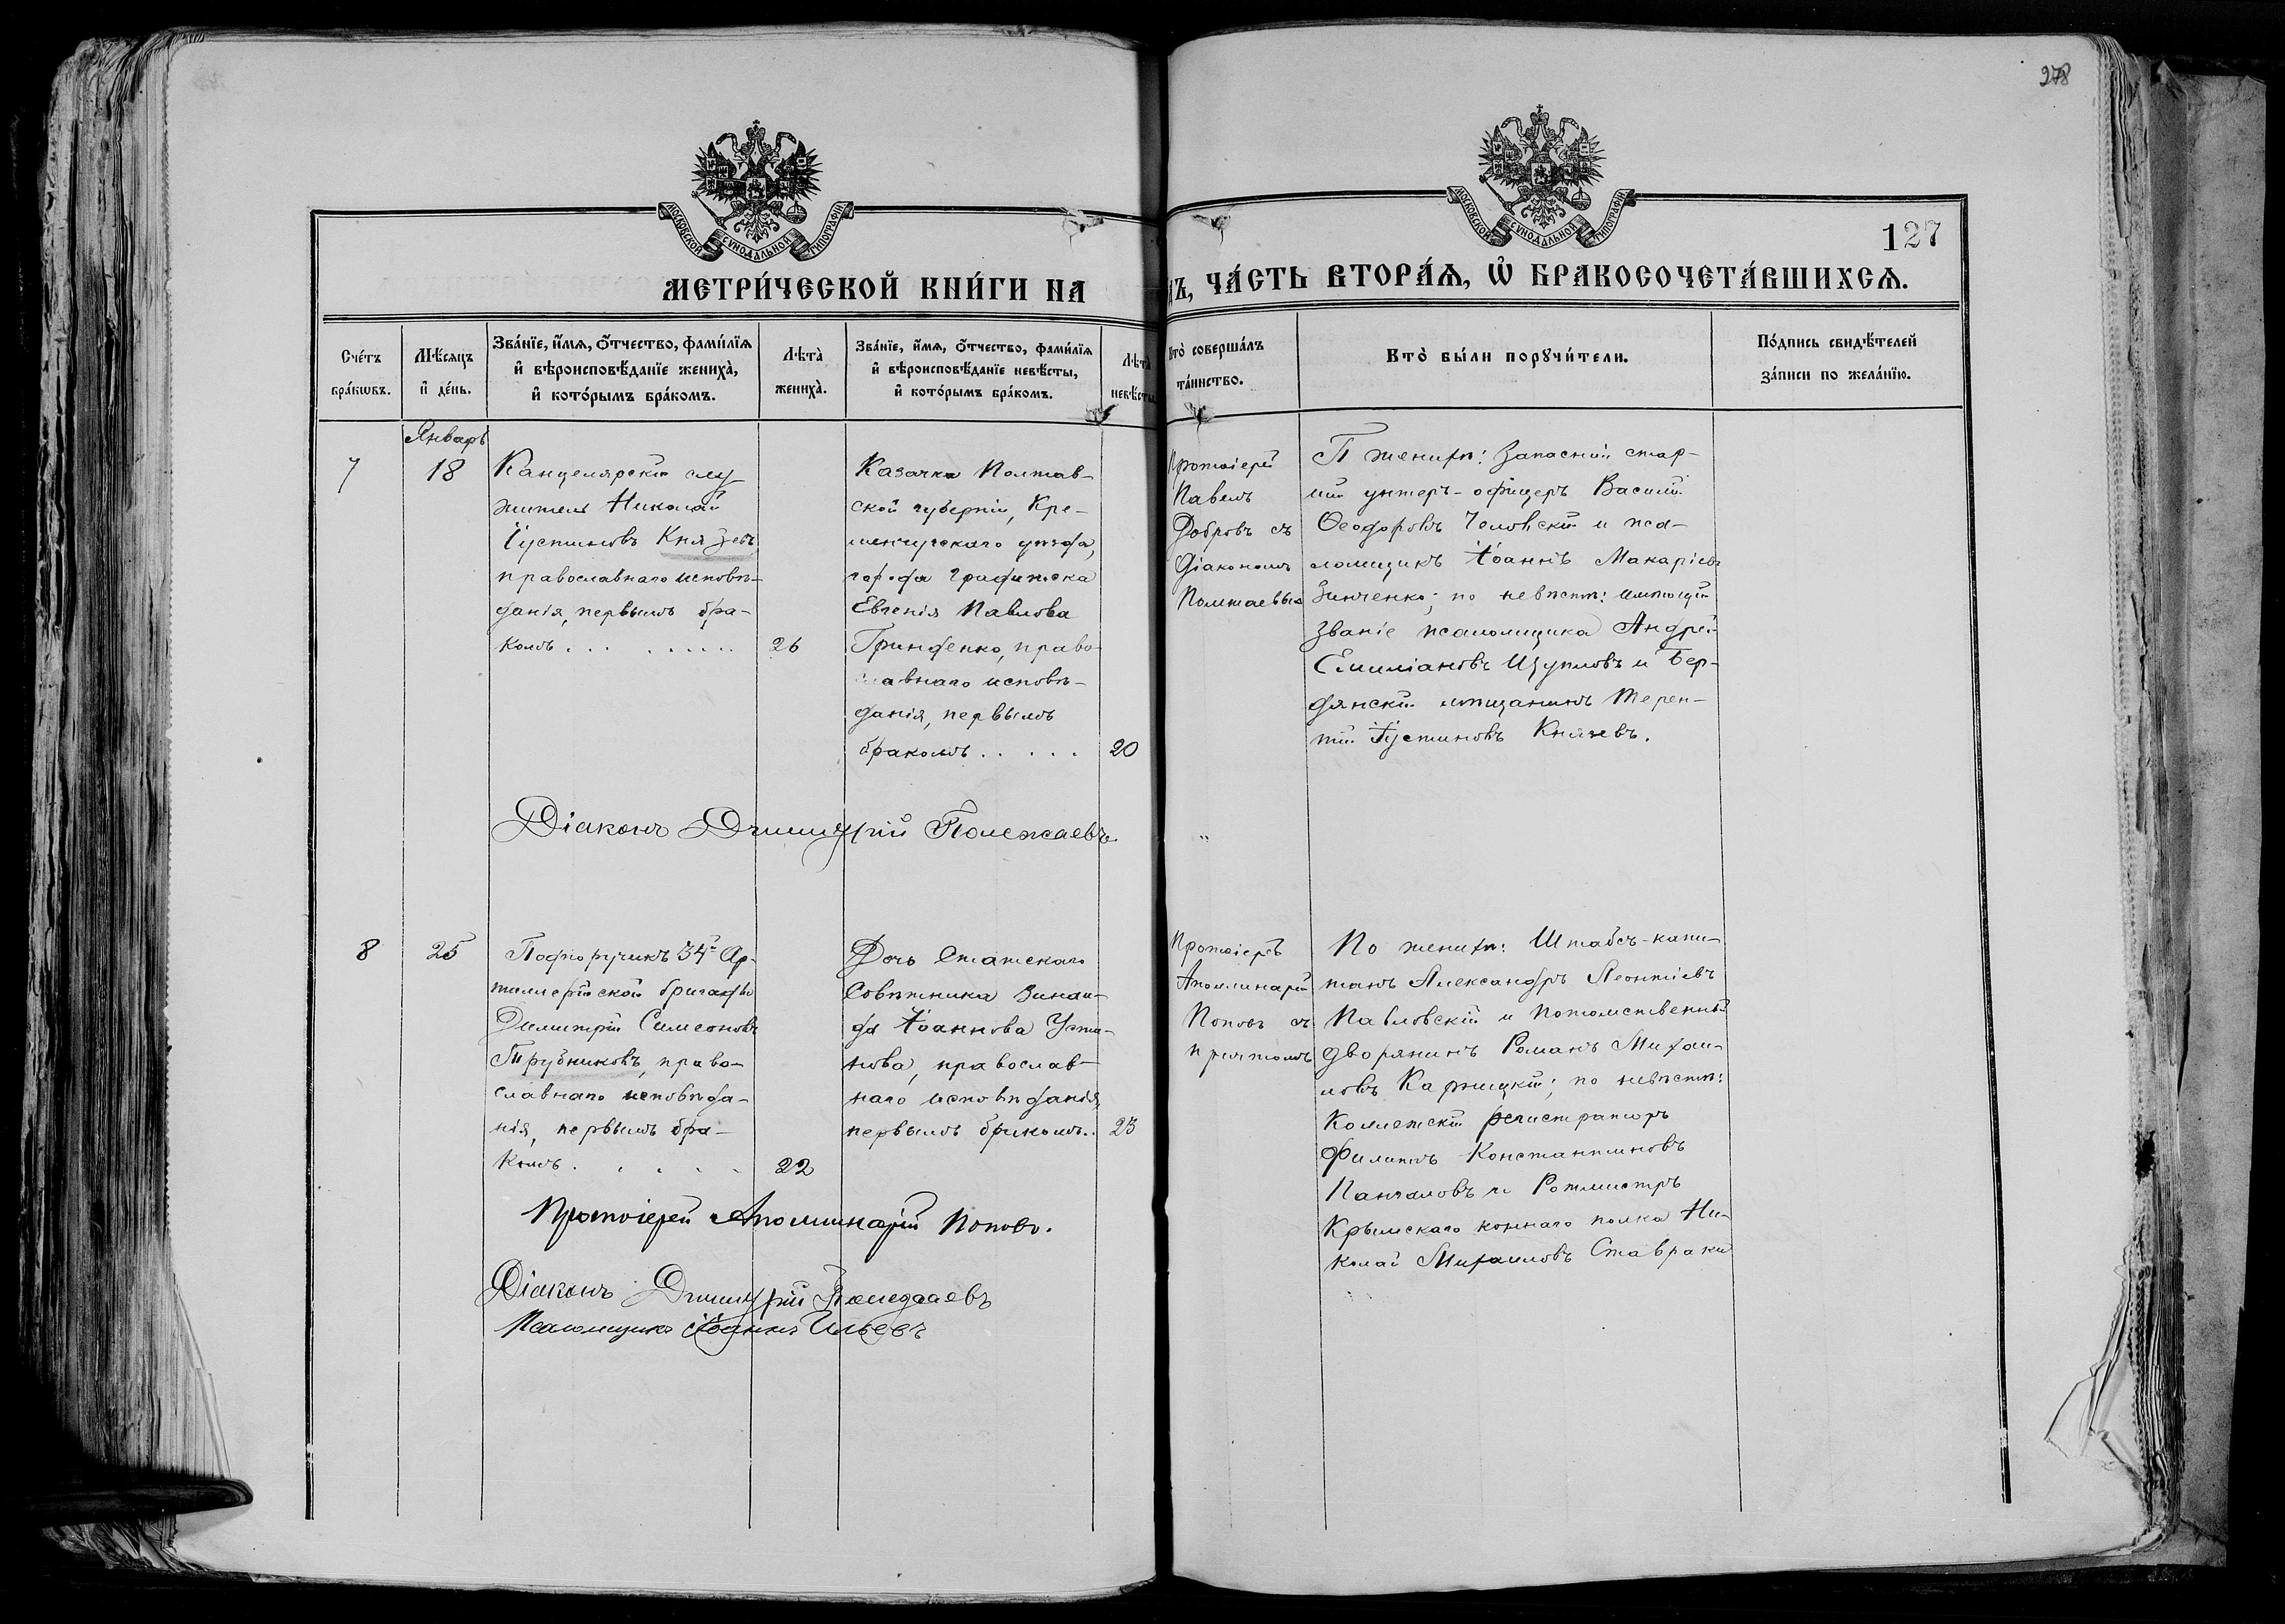 278
МОСКОВСКОЙ СУНОДАЛЬНОЙ ТИПОГРАФIИ
МОСКОВСКОЙ СУНОДАЛЬНОЙ ТИПОГРАФIИ
127
МЕТРИ́ЧЕСКОЙ КНИ́ГИ НА
Ъ, ЧА́СТЬ ВТОРА́Ѧ, Ѡ҆ БРАКОСОЧЕТА́ВШИХСѦ.
Сче́тъ бра́кѡвъ.
Мѣ́сѧцъ и҆ де́нь.
Зва́нїе, и҆́мѧ, ѻ҆́тчество, фами́лїѧ
и҆ вѣроисповѣ́данїе жениха̀,
и҆ кото́рымъ бра́комъ.
Лѣта̀ жениха̀.
Зва́нїе, и҆́мѧ, ѻ҆́тчество, фами́лїѧ
и҆ вѣроисповѣ́данїе невѣ́сты,
и҆ кото́рымъ бра́комъ.
Лѣта̀ невѣ́сты
Кто̀ соверша́лъ
та́инство.
Кто̀ бы́ли порꙋчи́тели.
По́дпись свидѣ́телей
за́писи по жела́нїю.
Январь
7
18
Канцелярскій слу
житель Николай
Іустиновъ Князевъ,
православнаго исповѣ-
данія, первымъ бра-
комъ . . . . . . . . .
26
Казачка Полтав-
ской губерніи, Кре-
менчугскаго уѣзда,
города Градижска
Евгенія Павлова
Гринденко, право
славнаго исповѣ-
данія, первымъ
бракомъ . . . . .
20
Протоіерей
Павелъ
Добровъ съ
Діакономъ
П женихѣ: Запасный стар-
шій унтеръ-офицеръ Василій
Ѳеодоровъ и пса-
ломщикъ Іоаннъ Макаріевъ
Зинченко; по невѣстѣ: имѣющій
званіе псаломщика Андрей
Емиліановъ Щупловъ и Бер-
дянскій мѣщанинъ Терен-
тій Іустиновъ Князевъ.
Діаконъ Димитрій Полежаевъ.
8
25
Подпоручикъ 34й Ар-
тиллерійской бригады
Димитрій Симеоновъ
Трубниковъ, право-
славнаго исповѣда-
нія, первымъ бра-
комъ . . . . . .
22
Дочь Статскаго
Совѣтника Зинаи-
да Іоаннова Усти-
нова, православ-
наго исповѣданія,
первымъ бракомъ. .
23
Протоіерей
Аполлинарій
Поповъ съ
причтомъ
По женихѣ: Штабсъ-капи-
танъ Александръ Леонтіевъ
Павловскій и Потомственный
дворянинъ Романъ Михаи-
ловъ Карницкій; по невѣстѣ:
Коллежскій регистраторъ
Филиппъ Константиновъ
Панчаловъ и Ротмистръ
Крымскаго коннаго полка Ни-
колай Михаиловъ Ставраки
Протоіерей Аполлинарій Поповъ.
Діаконъ Димитрій Полежаевъ
Псаломщикъ Іоаннъ Ильевъ